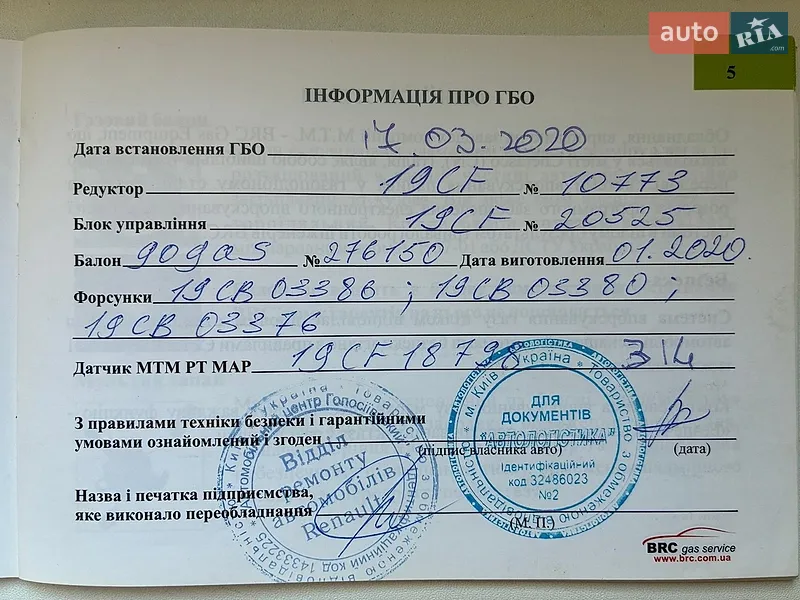 auto RIA .com
5
ІНФОРМАЦІЯ ПРО ГБО
Дата встановлення ГБО 17.03.2020
Редуктор 19CF № 10773
Блок управління 19CF № 20525
Балон gogas № 276150 Дата виготовлення 01.2020.
Форсунки 19CB 03386 ; 19CB 03380 ;
19CB 03376
Датчик МТМ РТ МАР 19CF18798 314
З правилами техніки безпеки і гарантійними
умовами ознайомлений і згоден
(підпис власника авто) (дата)
Назва і печатка підприємства,
яке виконало переобладнання
(М. П.)
Відділ
ремонту
автомобілів
Renault
м. Київ * Україна * Товариство з обмеженою відповідальністю
АВТОЛОГІСТИКА
ДЛЯ
ДОКУМЕНТІВ
"АВТОЛОГІСТИКА"
Ідентифікаційний
код 32486023
№2
BRC gas service
www.brc.com.ua